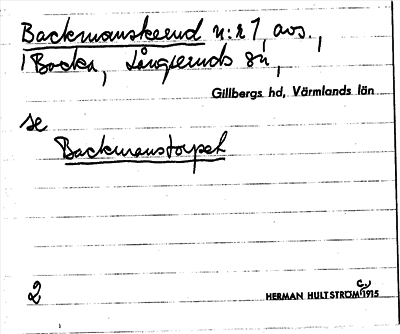 Backmanskerud n:r 1, avs.,
1 Backa, Långseruds sn,
Gillbergs hd, Värmlands län
se
Backmanstorpet
2
HERMAN HULTSTRÖM 1915